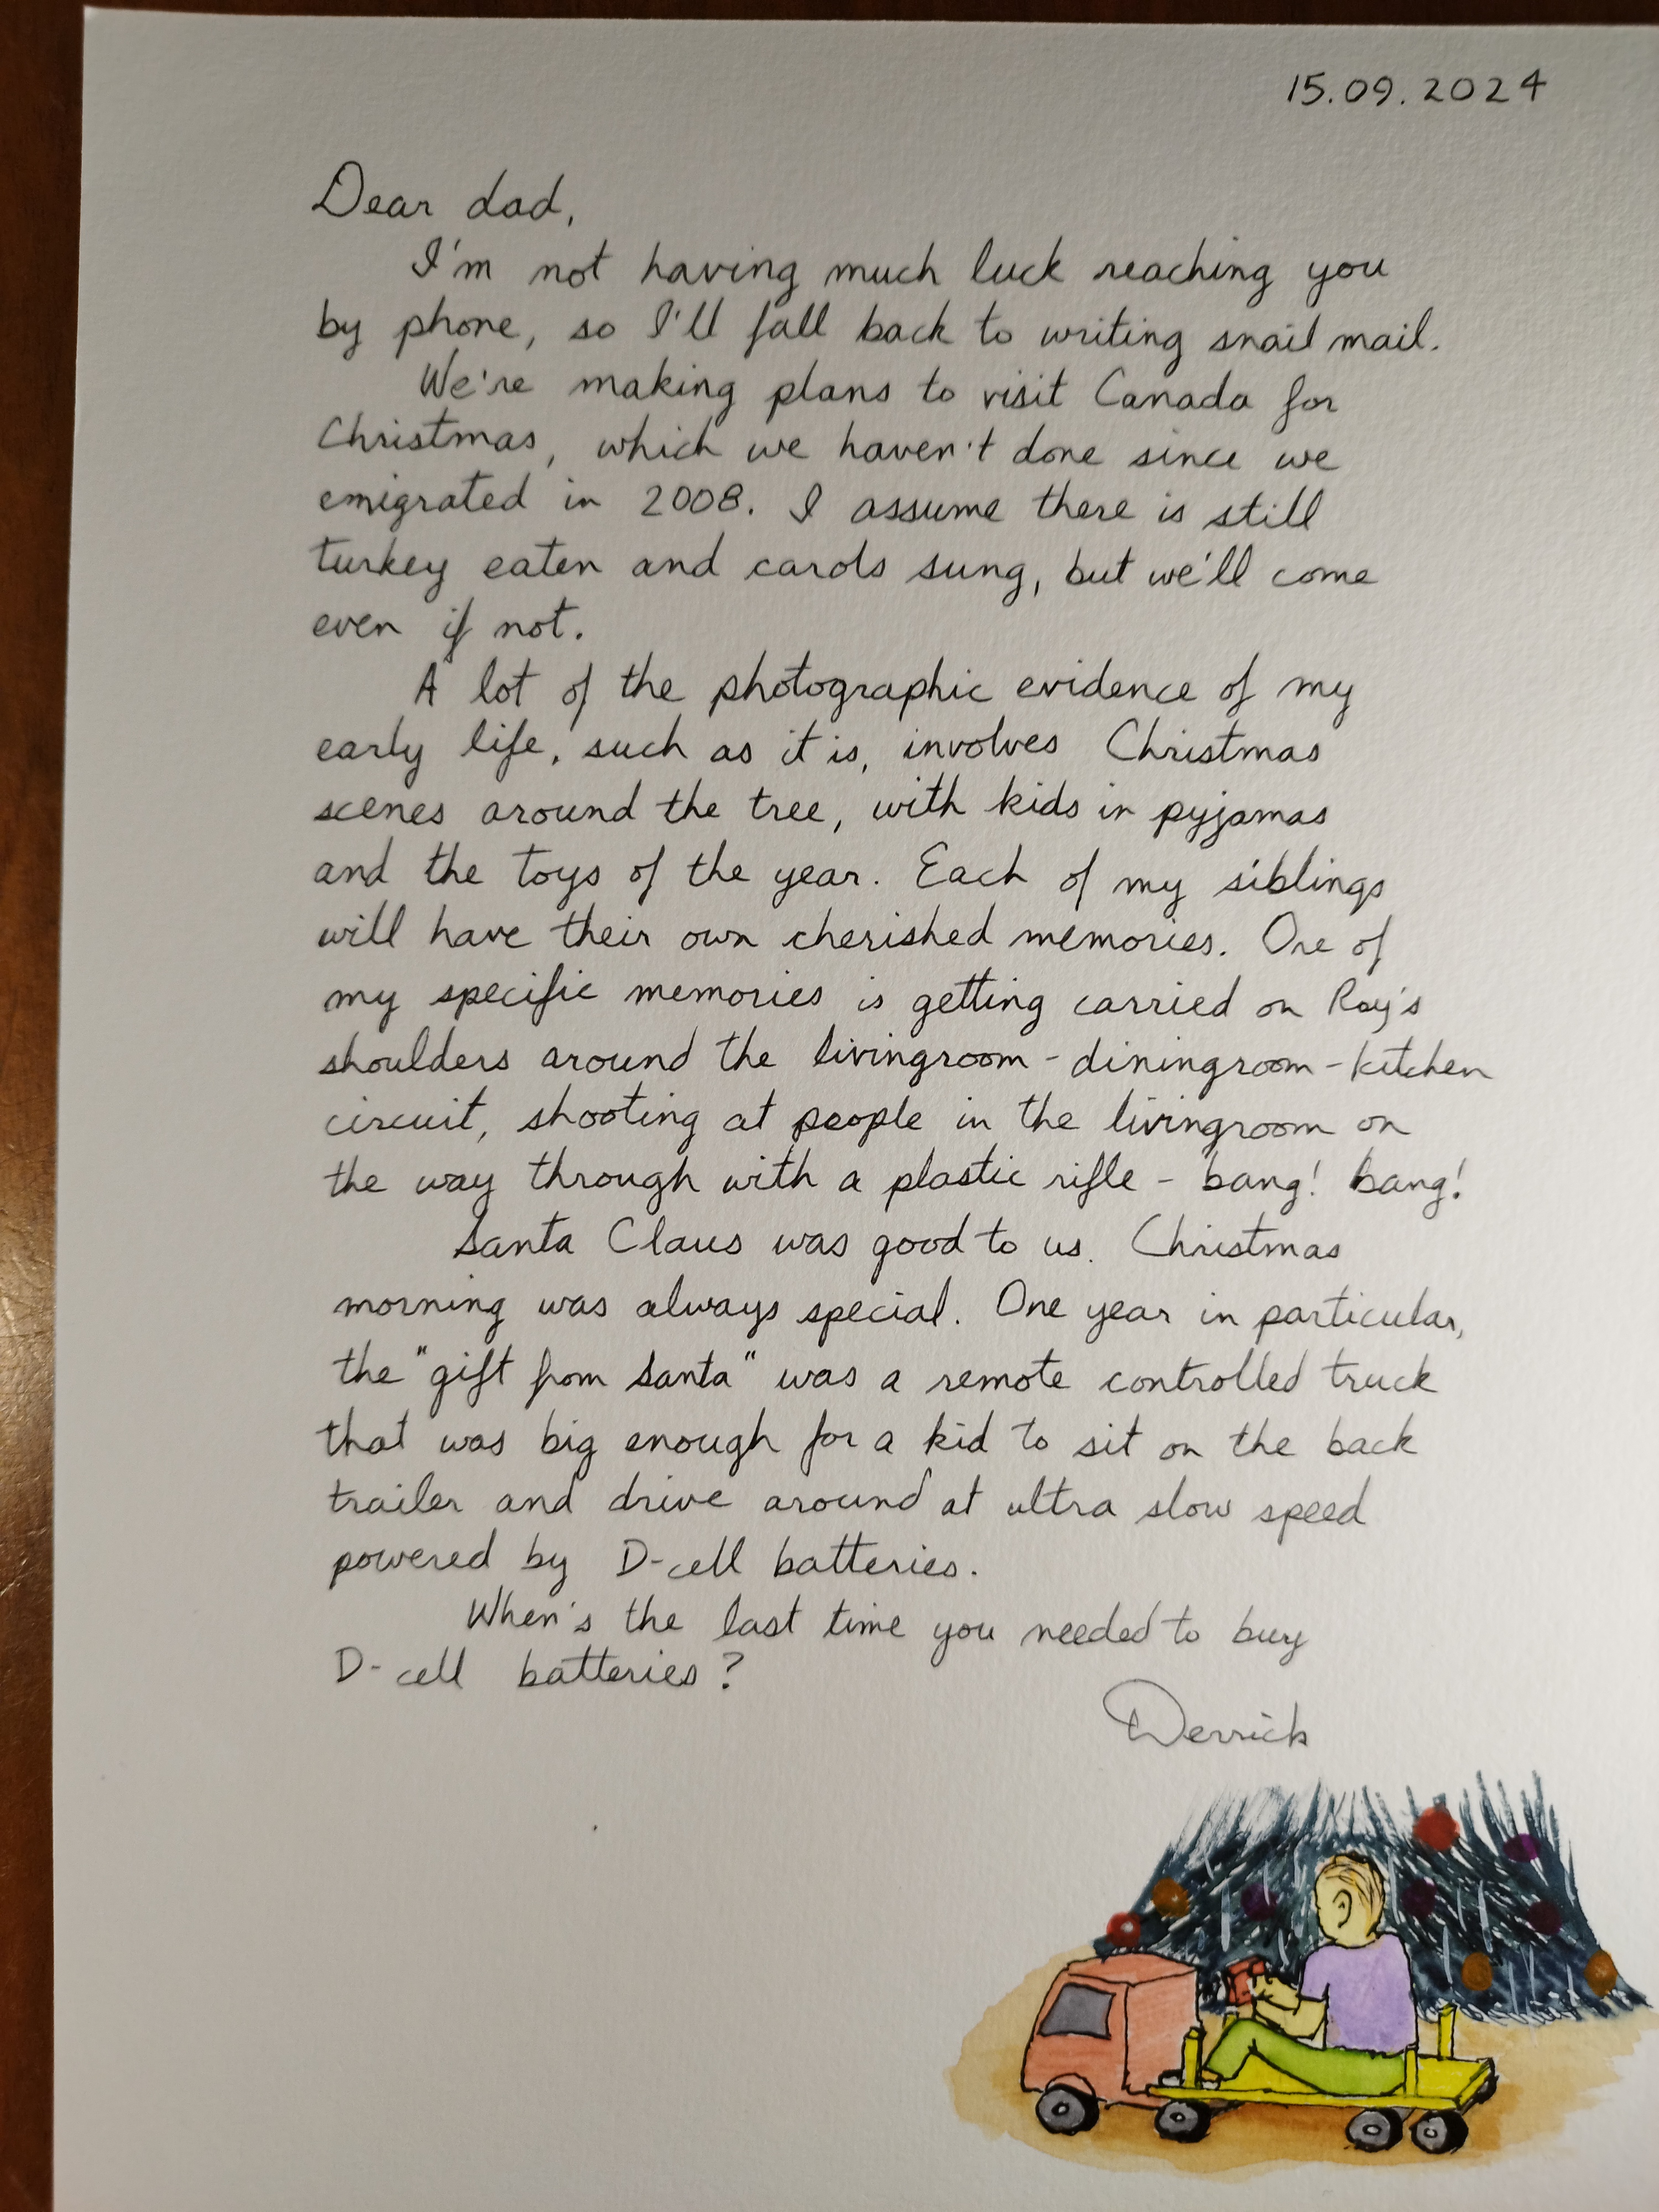 15.09.2024
Dear dad,
I'm not having much luck reaching you
by phone, so I'll fall back to writing snail mail.
We're making plans to visit Canada for
Christmas, which we haven't done since we
emigrated in 2008. I assume there is still
turkey eaten and carols sung, but we'll come
even if not.
A lot of the photographic evidence of my
early life, such as it is, involves Christmas
scenes around the tree, with kids in pyjamas
and the toys of the year. Each of my siblings
will have their own cherished memories. One of
my specific memories is getting carried on Ray's
shoulders around the livingroom - diningroom - kitchen
circuit, shooting at people in the livingroom on
the way through with a plastic rifle - bang! bang!
Santa Claus was good to us. Christmas
morning was always special. One year in particular,
the "gift from Santa" was a remote controlled truck
that was big enough for a kid to sit on the back
trailer and drive around at ultra slow speed
powered by D-cell batteries.
When's the last time you needed to buy
D-cell batteries?
Derrick